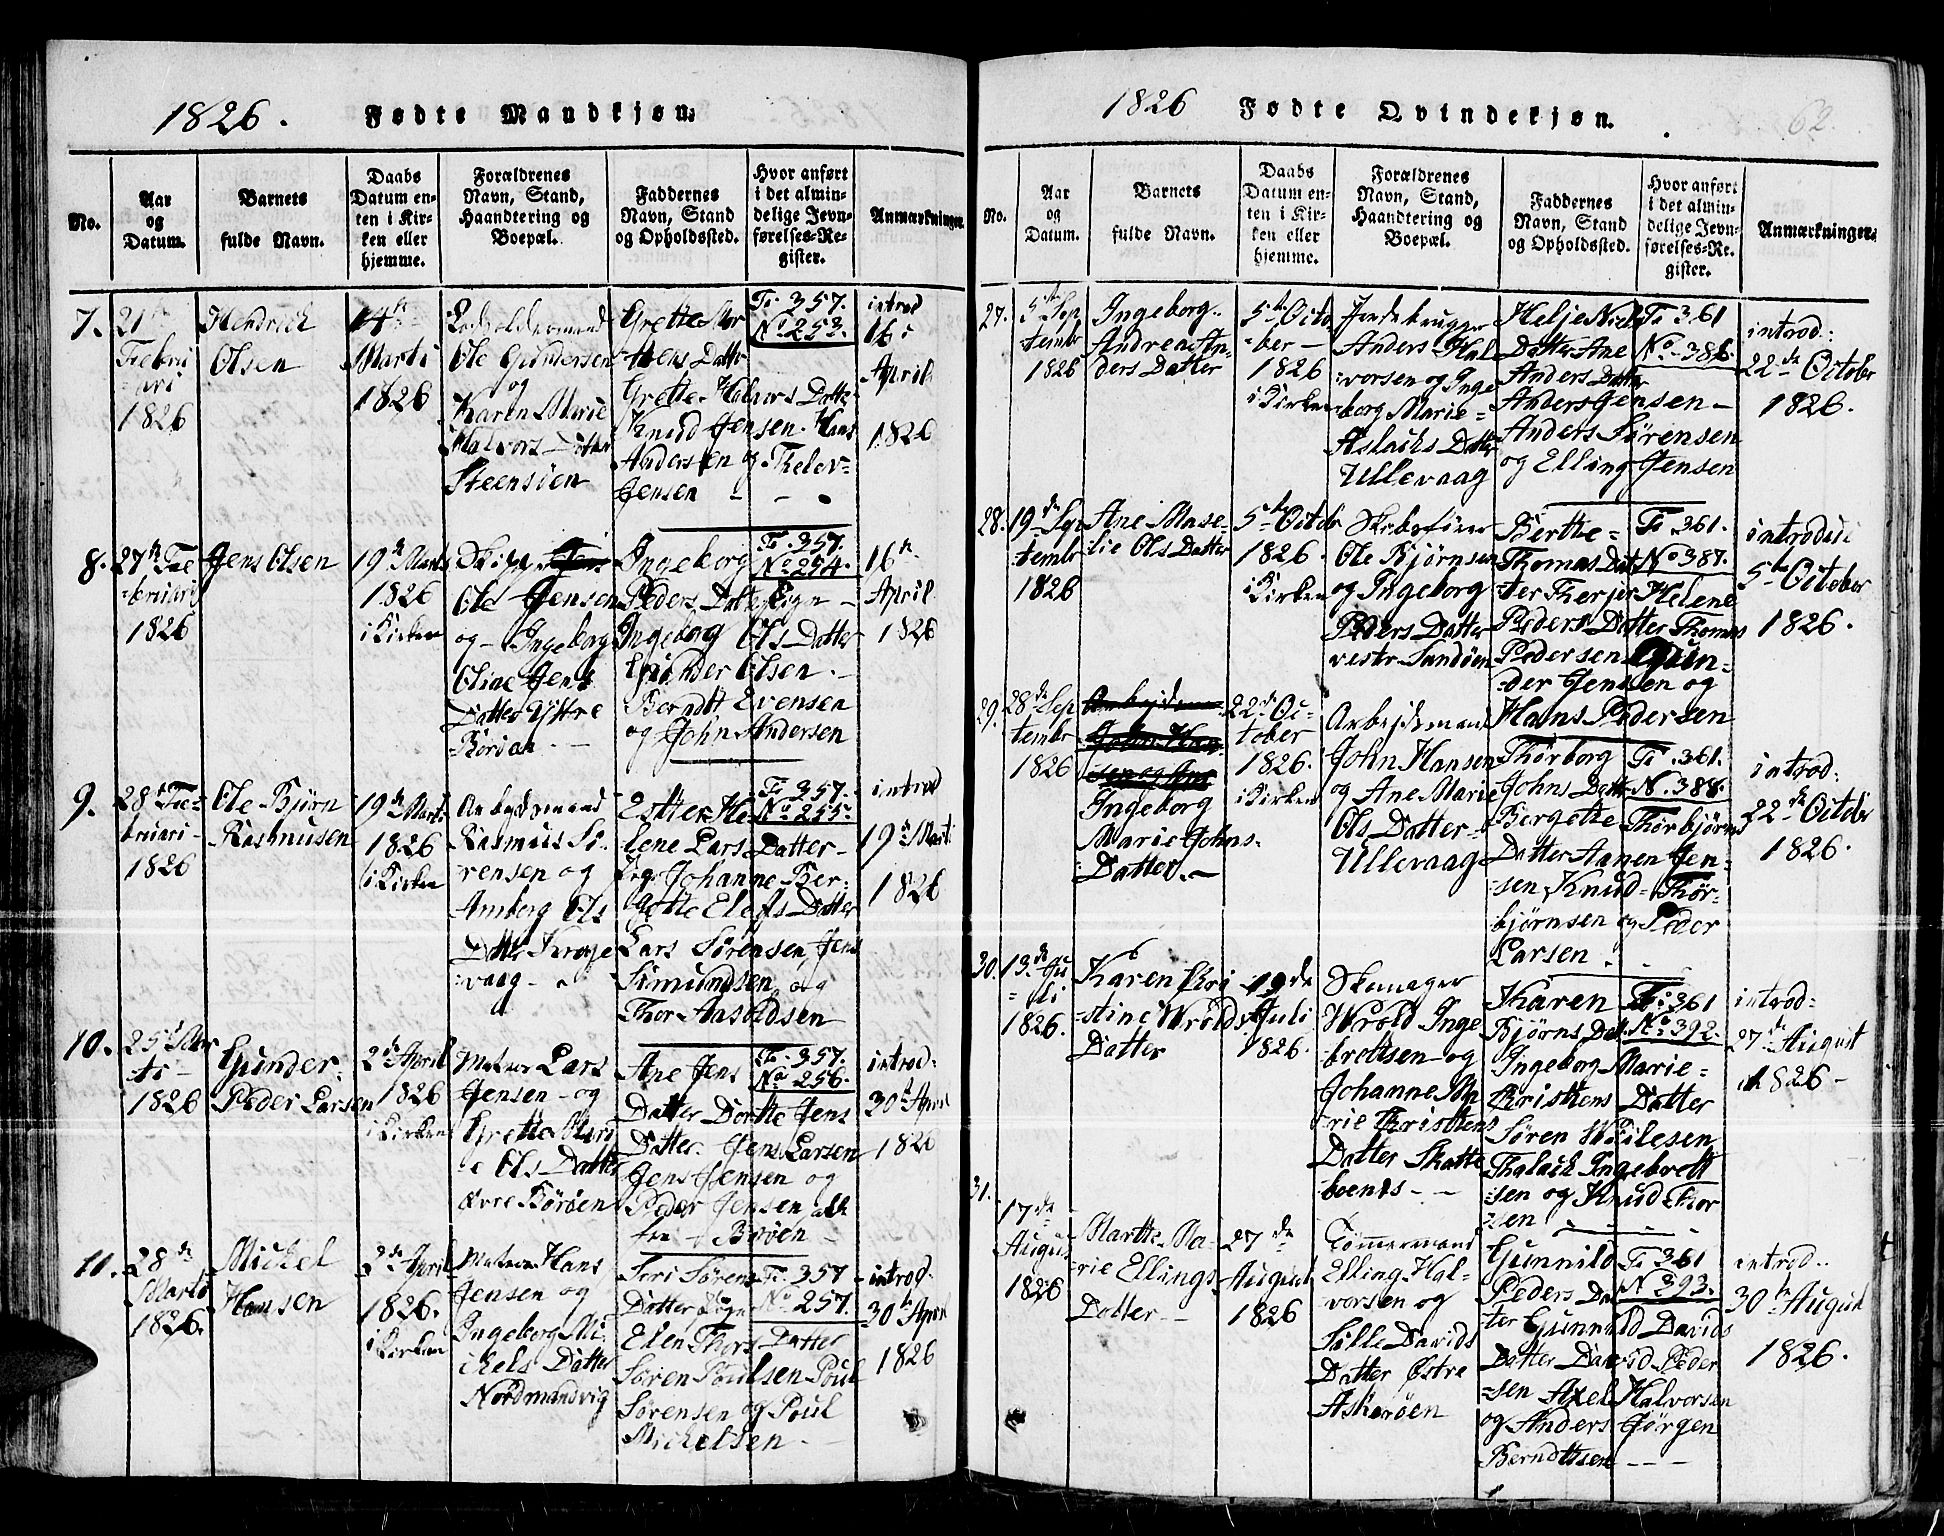 1826. Fødte Mandkjøn.
No.
Aar
og
Datum.
Barnets
fulde Navn.
Daabs
Datum en-
ten i Kir-
ken eller
hjemme.
Forældrenes
Navn, Stand,
Haandtering og
Boepæl.
Faddernes
Navn, Stand
og Opholdssted.
Hvor anført
i det almin-
delige Jevn-
førelses-Re-
gister.
Anmærkninger.
7.
21
Febru
ari
1826
Hendrich
Olsen
14de
Marti
1826
Ole Gundersen
og
Karen Marie
Halvors Datter
Steensøen
Grette Mor
tens Datter
Grette Halvors Datter
Knud Jensen. Hans
Andersen og Thelev-
Jensen
Fo 357.
No 253.
introd
16
April
1826
8.
27de Fe
-bruari
1826
Jens Olsen
19de Marti
1826
i Kirken
Ole Jensen
og Ingeborg
Oline Jens
Datter Yttre
Børøen
Ingeborg
Peders Datter
Ingeborg Ols Datter
Gunder Olsen.
Berndtt Evensen
og John Andersen
Fo 357.
No 254.
16
April
1826
9.
28de Fe-
bruari-
1826
Ole Bjørn
Rasmusen
19de Marti
1826
i Kirken
Arbeydsmand
Rasmus Sø-
rensen og
Amberg Ols
Datter Kroge
-vaag
Ester He
lene Lars Datter-
Johanne Ber-
gette Elefs Datter
Lars Sørensen, Jens
Simundsen og
Thor Aasuldsen
Fo 357.
No 255.
introd
19de Marti
1826
10.
25de Mar
ti-
1826
Gunder
Peder Larsen
2de April
1826
i Kirken
Matros Lars
Jensen og
Grette Mari
e Ols Datter
Øvre Børøen
Ane Jens
Datter Dortte Jens
Datter. Jens Larsen
Jens Jensen og
Peder Jensen
Børøen
Fo 357.
No 256.
introd.
30te April
1826
11.
28de
Marti
1826.
Michel
Hansen
2de April
1826.
i Kirken
Matros Hans
Jensen og
Ingeborg Mi
chels Datter
Nordmandsvig
Siri Sørens
Datter
Elen Thors Datter
Søren Poulsen Poul
Sørensen og Poul
Michelsen.
Fo 357
No 257.
introd.
30te April
1826
1826 Fødte Qvindekjøn.
62.
No.
Aar
og
Datum.
Barnets
fulde Navn.
Daabs
Datum en-
ten i Kir-
ken eller
hjemme.
Forældrenes
Navn, Stand,
Haandtering og
Boepæl.
Faddernes
Navn, Stand
og Opholdssted.
Hvor anført
i det almin-
delige Jevn-
førelses-Re-
gister.
Anmærkninger.
27.
5te Sep
tembr
1826
Ingeborg
Andrea An-
ders Datter
5te Octo
-ber-
1826
i Kirken
Jordebrugger
Anders Hal
-vorsen og Inge
borg Marie-
Aslachs Datter
Ullevaag
Helje Niels
Datter Ane
Anders Datter
Anders Jensen-
Anders Sørensen
og Elling Jensen
Fo 361
No 386
introd:
22de October
1826.
28.
19de Sep
tembr
1826
Ane Mase-
lie Ols Datter
5te Octobr
1826.
i Kirken
Ole Bjørnsen
og Ingeborg
Peders Datter
vestr Sandøen
Berthe-
Thomas Dat
ter Therjer Helene
Peders Datter Thomas
Pedersen Gun-
-der Jensen og
Hans Pedersen
Fo 361.
No 387.
5te October
1826.
29.
28de Sep
tembr
1826
Ingeborg
Marie Johns-
Datter.
22de Oc-
tober
1826.
i Kirken
Arbejdsmand
John Hansen
og Ane Marie
Ols Datter-
Ullevaag
Thørborg
Johns Datter
Bergette Thørbjørns
Datter Aanen Jen-
sen, Knud Thør-
bjørnsen og Peder
Larsen
Fo 361.
No 388.
introd:
22de October
1826.
30.
13de Ju
li
1826.
Karen Kri
-stine Wrolds
Datter
19de
Juli
1826.
Skomager
Wrold Inge
brettsen og
Johanne Ma
rie Christens
Datter Skatte
boends
Karen
Bjørns Dat
Ingeborg Marie-
Kristens Datter
Søren
Thalach Ingebrett
sen og Knud Thor
sen
Fo 361
No 392.
introd=
27de August
1826-
31.
17de
Augus
1826
Martte Ma-
rie Ellings
Datter
27de
August
1826
Tømmermand
Elling Hal-
vorsen og
Sille Davids
Datter Østre
Askerøen
Gunnild
Peders Dat
ter Gunnild Davids
Datter David Peder
-sen Axel Halvorsen
og Anders Jørgen
Berndtsen
Fo 361
No 393.
introd..
30te August
1826.